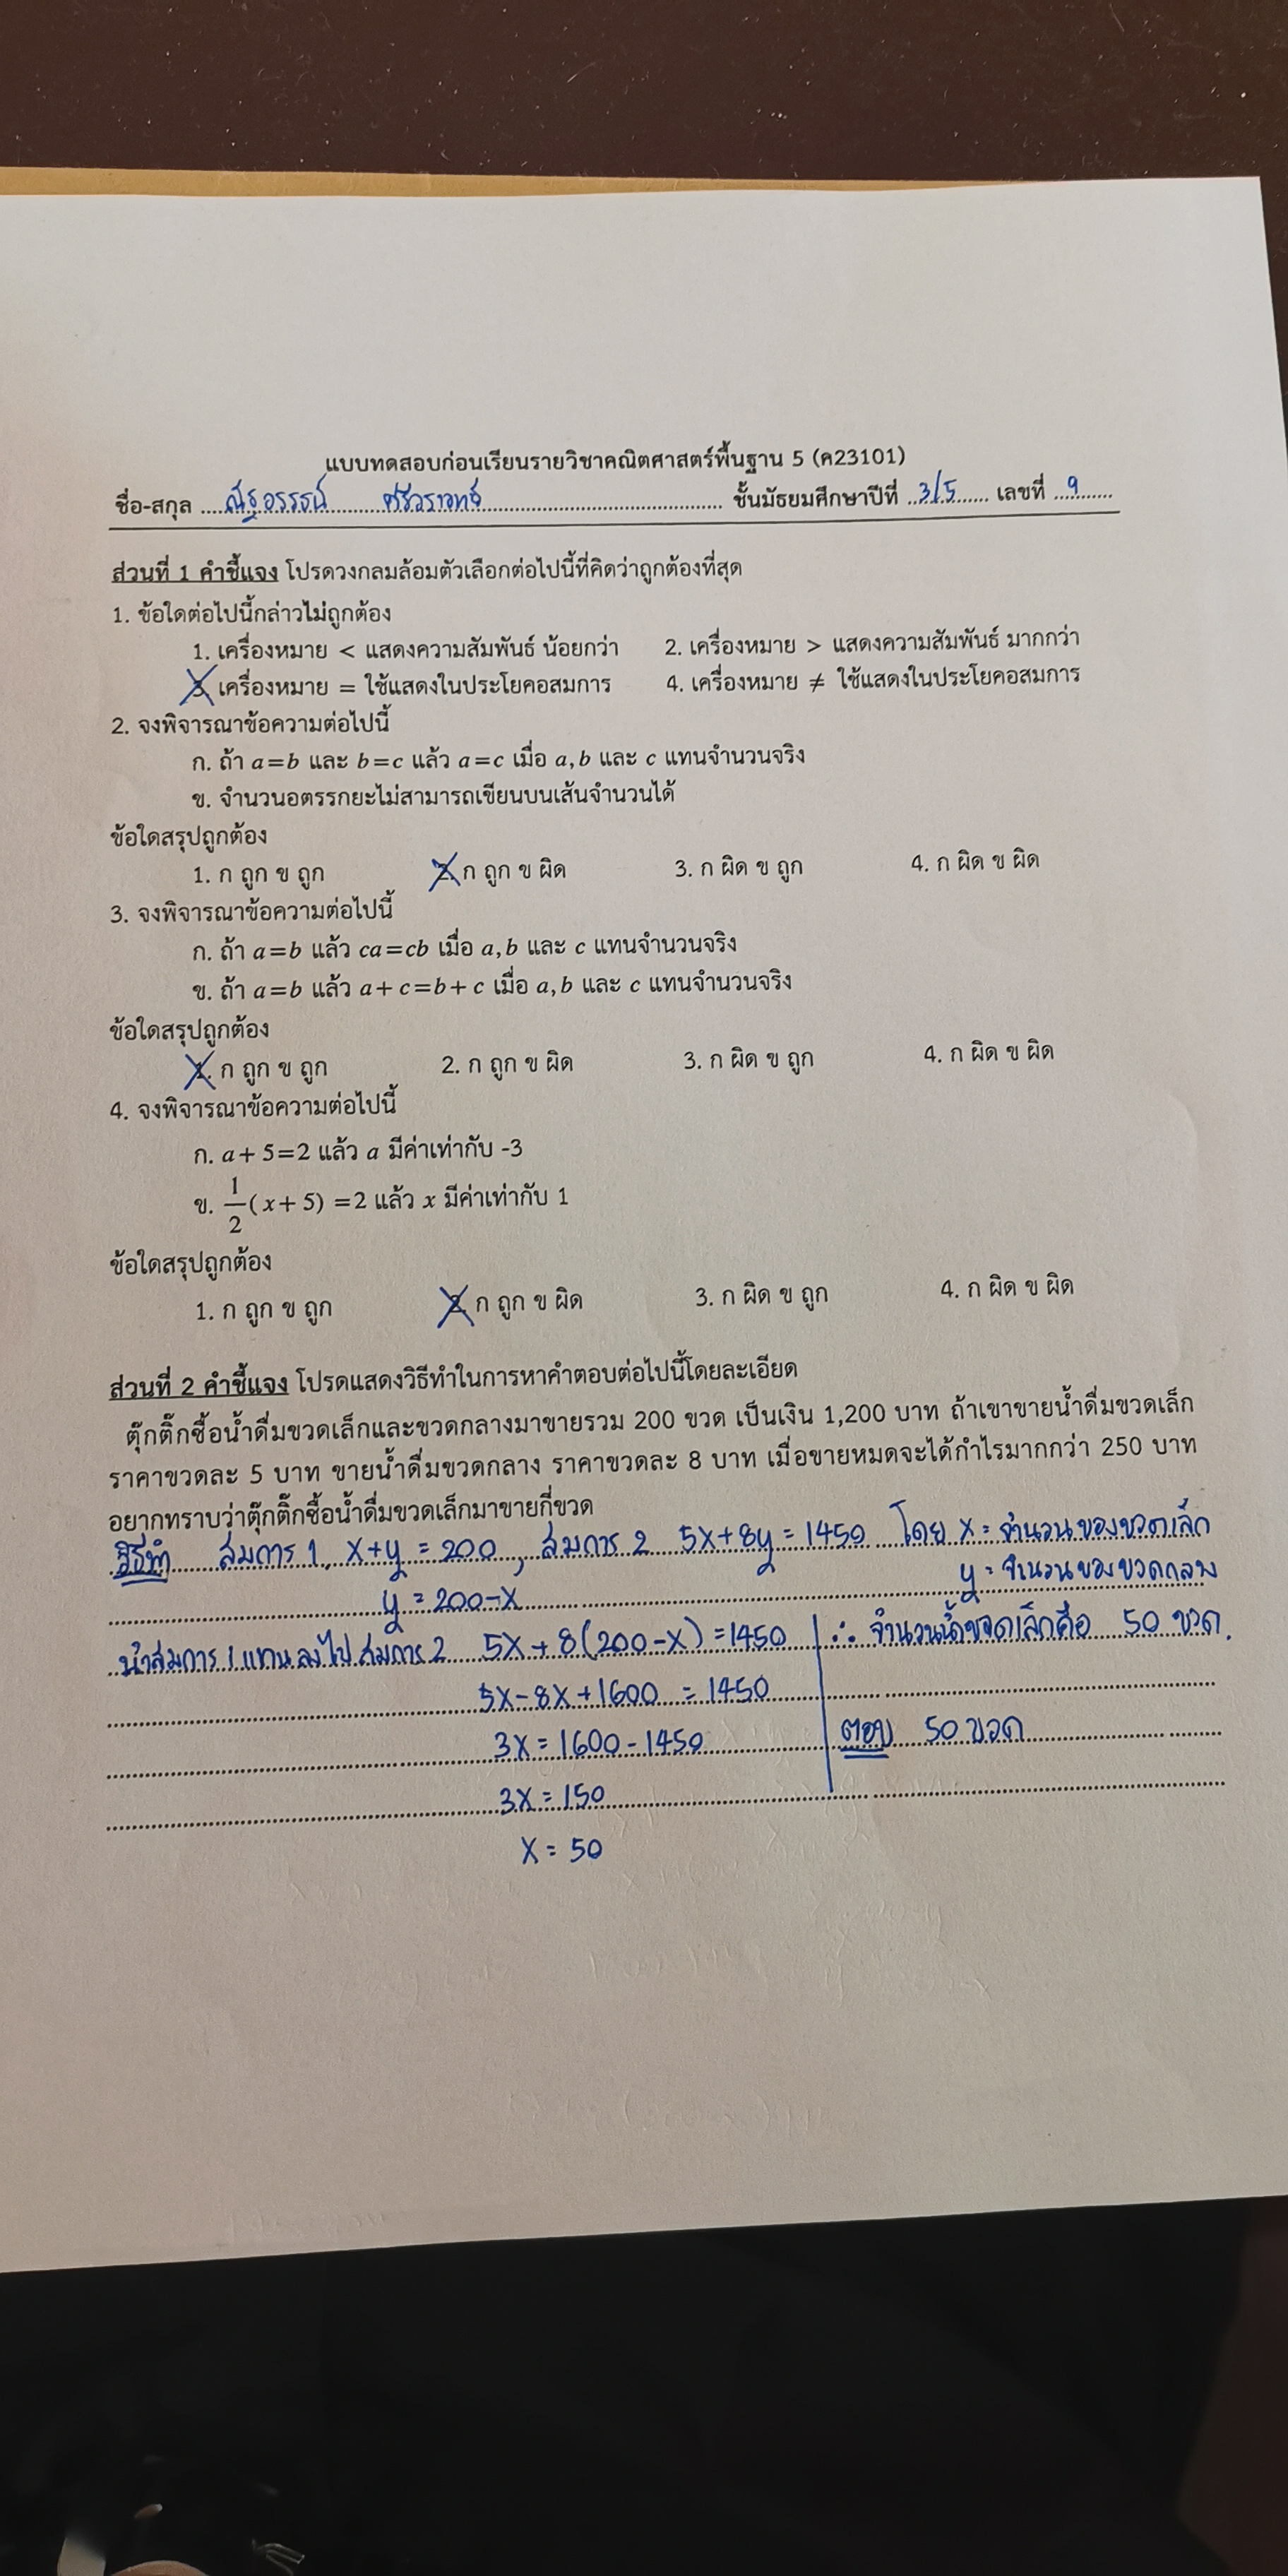 แบบทดสอบก่อนเรียนรายวิชาคณิตศาสตร์พื้นฐาน 5 (ค23101)
ชื่อ-สกุล ณัฐอรรธน์ ชั้นมัธยมศึกษาปีที่ 3/5 เลขที่ 9
ส่วนที่ 1 คำชี้แจง โปรดวงกลมล้อมตัวเลือกต่อไปนี้ที่คิดว่าถูกต้องที่สุด
1. ข้อใดต่อไปนี้กล่าวไม่ถูกต้อง
1. เครื่องหมาย < แสดงความสัมพันธ์ น้อยกว่า 2. เครื่องหมาย > แสดงความสัมพันธ์ มากกว่า
3. เครื่องหมาย = ใช้แสดงในประโยคอสมการ 4. เครื่องหมาย ≠ ใช้แสดงในประโยคอสมการ
2. จงพิจารณาข้อความต่อไปนี้
ก. ถ้า a=b และ b=c แล้ว a=c เมื่อ a,b และ c แทนจำนวนจริง
ข. จำนวนอตรรกยะไม่สามารถเขียนบนเส้นจำนวนได้
ข้อใดสรุปถูกต้อง
1. ก ถูก ข ถูก 2. ก ถูก ข ผิด 3. ก ผิด ข ถูก 4. ก ผิด ข ผิด
3. จงพิจารณาข้อความต่อไปนี้
ก. ถ้า a=b แล้ว ca=cb เมื่อ a,b และ c แทนจำนวนจริง
ข. ถ้า a=b แล้ว a+c=b+c เมื่อ a,b และ c แทนจำนวนจริง
ข้อใดสรุปถูกต้อง
1. ก ถูก ข ถูก 2. ก ถูก ข ผิด 3. ก ผิด ข ถูก 4. ก ผิด ข ผิด
4. จงพิจารณาข้อความต่อไปนี้
ก. a+5=2 แล้ว a มีค่าเท่ากับ -3
ข. 1/2(x+5) =2 แล้ว x มีค่าเท่ากับ 1
ข้อใดสรุปถูกต้อง
1. ก ถูก ข ถูก 2. ก ถูก ข ผิด 3. ก ผิด ข ถูก 4. ก ผิด ข ผิด
ส่วนที่ 2 คำชี้แจง โปรดแสดงวิธีทำในการหาคำตอบต่อไปนี้โดยละเอียด
ตุ๊กติ๊กซื้อน้ำดื่มขวดเล็กและขวดกลางมาขายรวม 200 ขวด เป็นเงิน 1,200 บาท ถ้าเขาขายน้ำดื่มขวดเล็ก
ราคาขวดละ 5 บาท ขายน้ำดื่มขวดกลาง ราคาขวดละ 8 บาท เมื่อขายหมดจะได้กำไรมากกว่า 250 บาท
อยากทราบว่าตุ๊กติ๊กซื้อน้ำดื่มขวดเล็กมาขายกี่ขวด
วิธีทำ สมการ 1 x+y = 200 , สมการ 2 5x+8y = 1450 โดย x = จำนวนของขวดเล็ก
y = 200-x y = จำนวนของขวดกลาง
นำสมการ 1 แทนลงไปสมการ 2 5x+8(200-x) = 1450 ∴ จำนวนน้ำขวดเล็กคือ 50 ขวด.
5x-8x+1600 = 1450
3x = 1600-1450 ตอบ 50 ขวด
3x = 150
x = 50